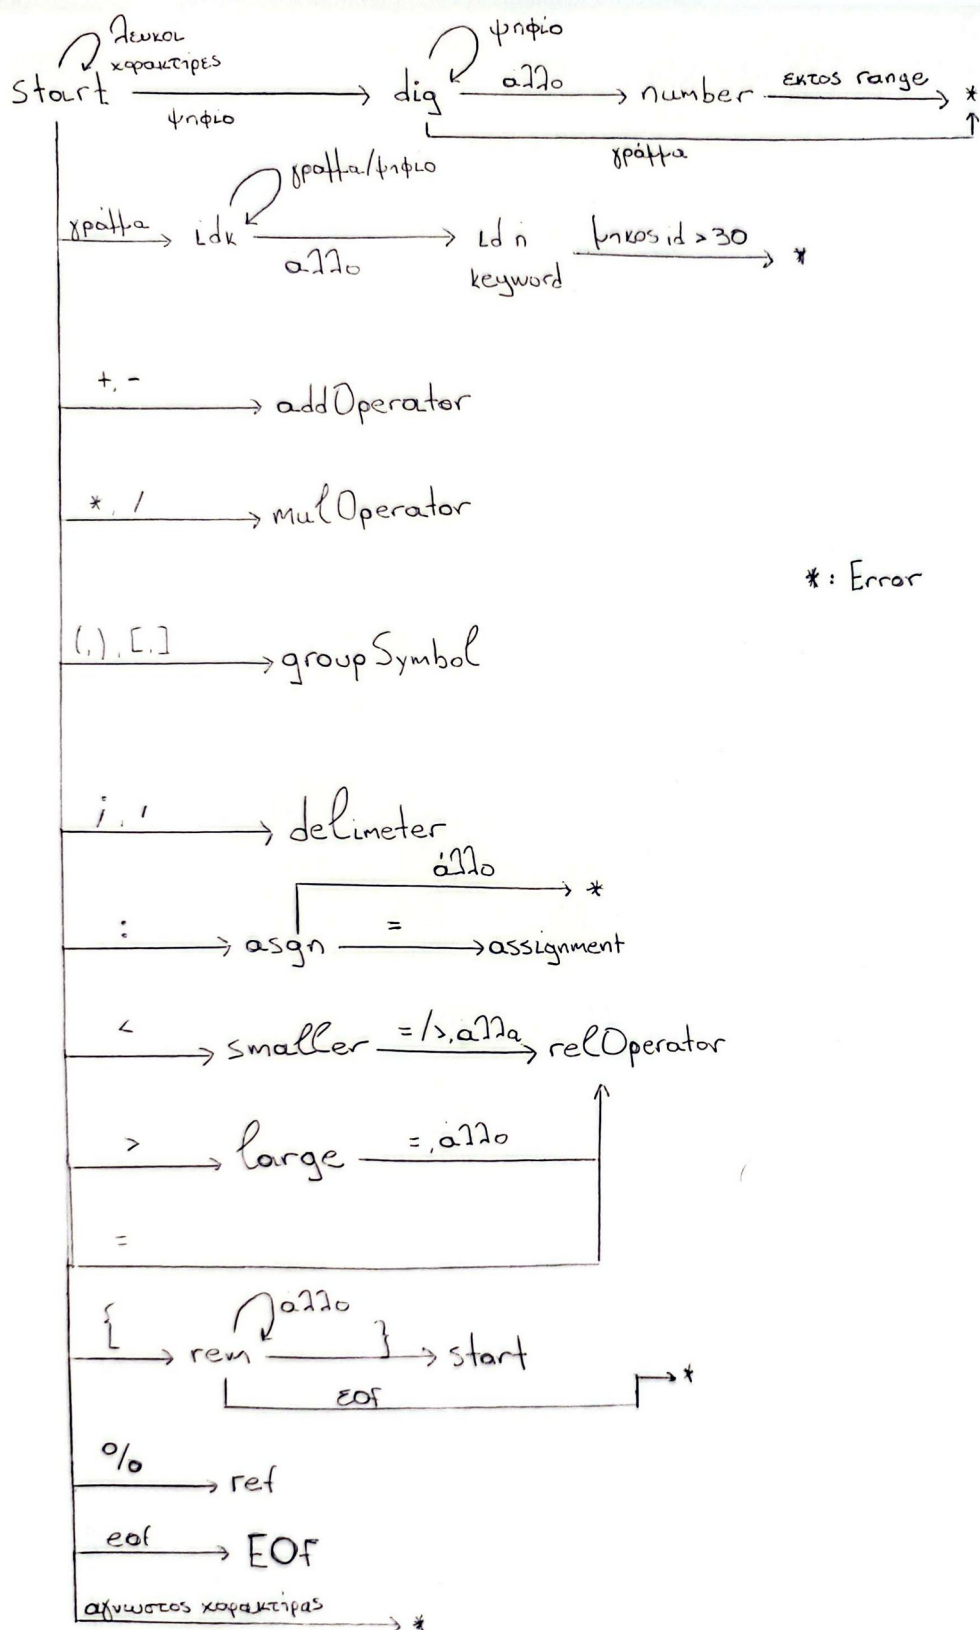 λευκοι
χαρακτιρες
start
ψηφιο
dig
ψηφίο
αλλο
number
εκτος range
*
γράμμα
γράμμα
idk
γραμμα/ψηφιο
αλλο
id ή
keyword
μηκος id > 30
*
+, -
addOperator
*, /
mulOperator
*: Error
(,), [,]
groupSymbol
; , ,
delimeter
άλλο
*
:
asgn
=
assignment
<
smaller
=/>, αλλα
relOperator
>
large
=, αλλο
=
{
rem
αλλο
}
start
εof
*
%
ref
eof
EOf
αγνωστος χαρακτιρας
*